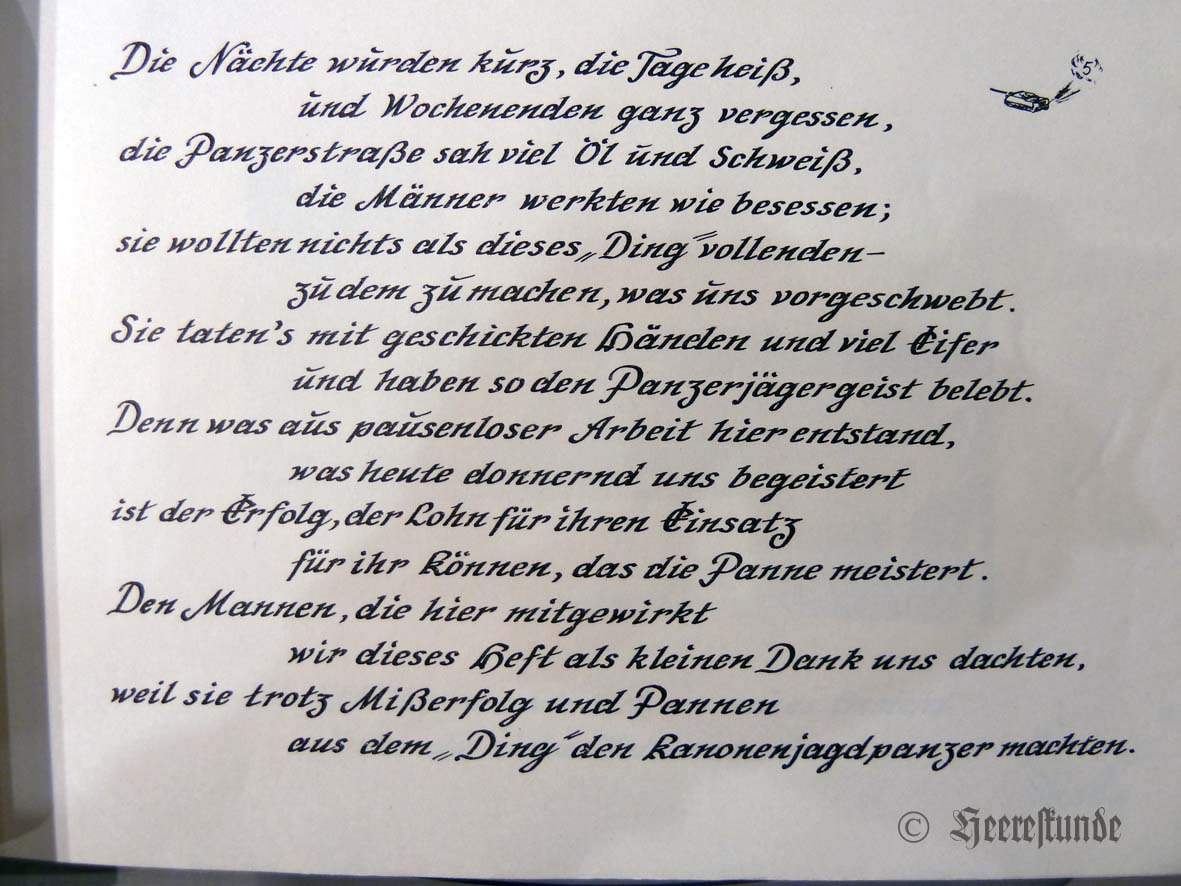 Die Nächte wurden kurz, die Tage heiß,
"5"
und Wochenenden ganz vergessen,
die Panzerstraße sah viel Öl und Schweiß,
die Männer werkten wie besessen;
sie wollten nichts als dieses „Ding“ vollenden–
zu dem zu machen, was uns vorgeschwebt.
Sie taten's mit geschickten Händen und viel Eifer
und haben so den Panzerjägergeist belebt.
Denn was aus pausenloser Arbeit hier entstand,
was heute donnernd uns begeistert
ist der Erfolg, der Lohn für ihren Einsatz
für ihr Können, das die Panne meistert.
Den Mannen, die hier mitgewirkt
wir dieses Heft als kleinen Dank uns dachten,
weil sie trotz Mißerfolg und Pannen
aus dem „Ding“ den Kanonenjagdpanzer machten.
© Heereskunde